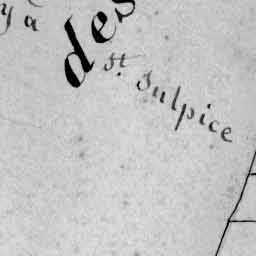 y a
des
st. sulpice